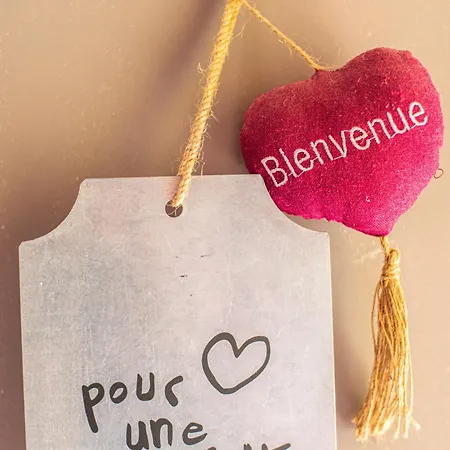 Bienvenue
pour
une